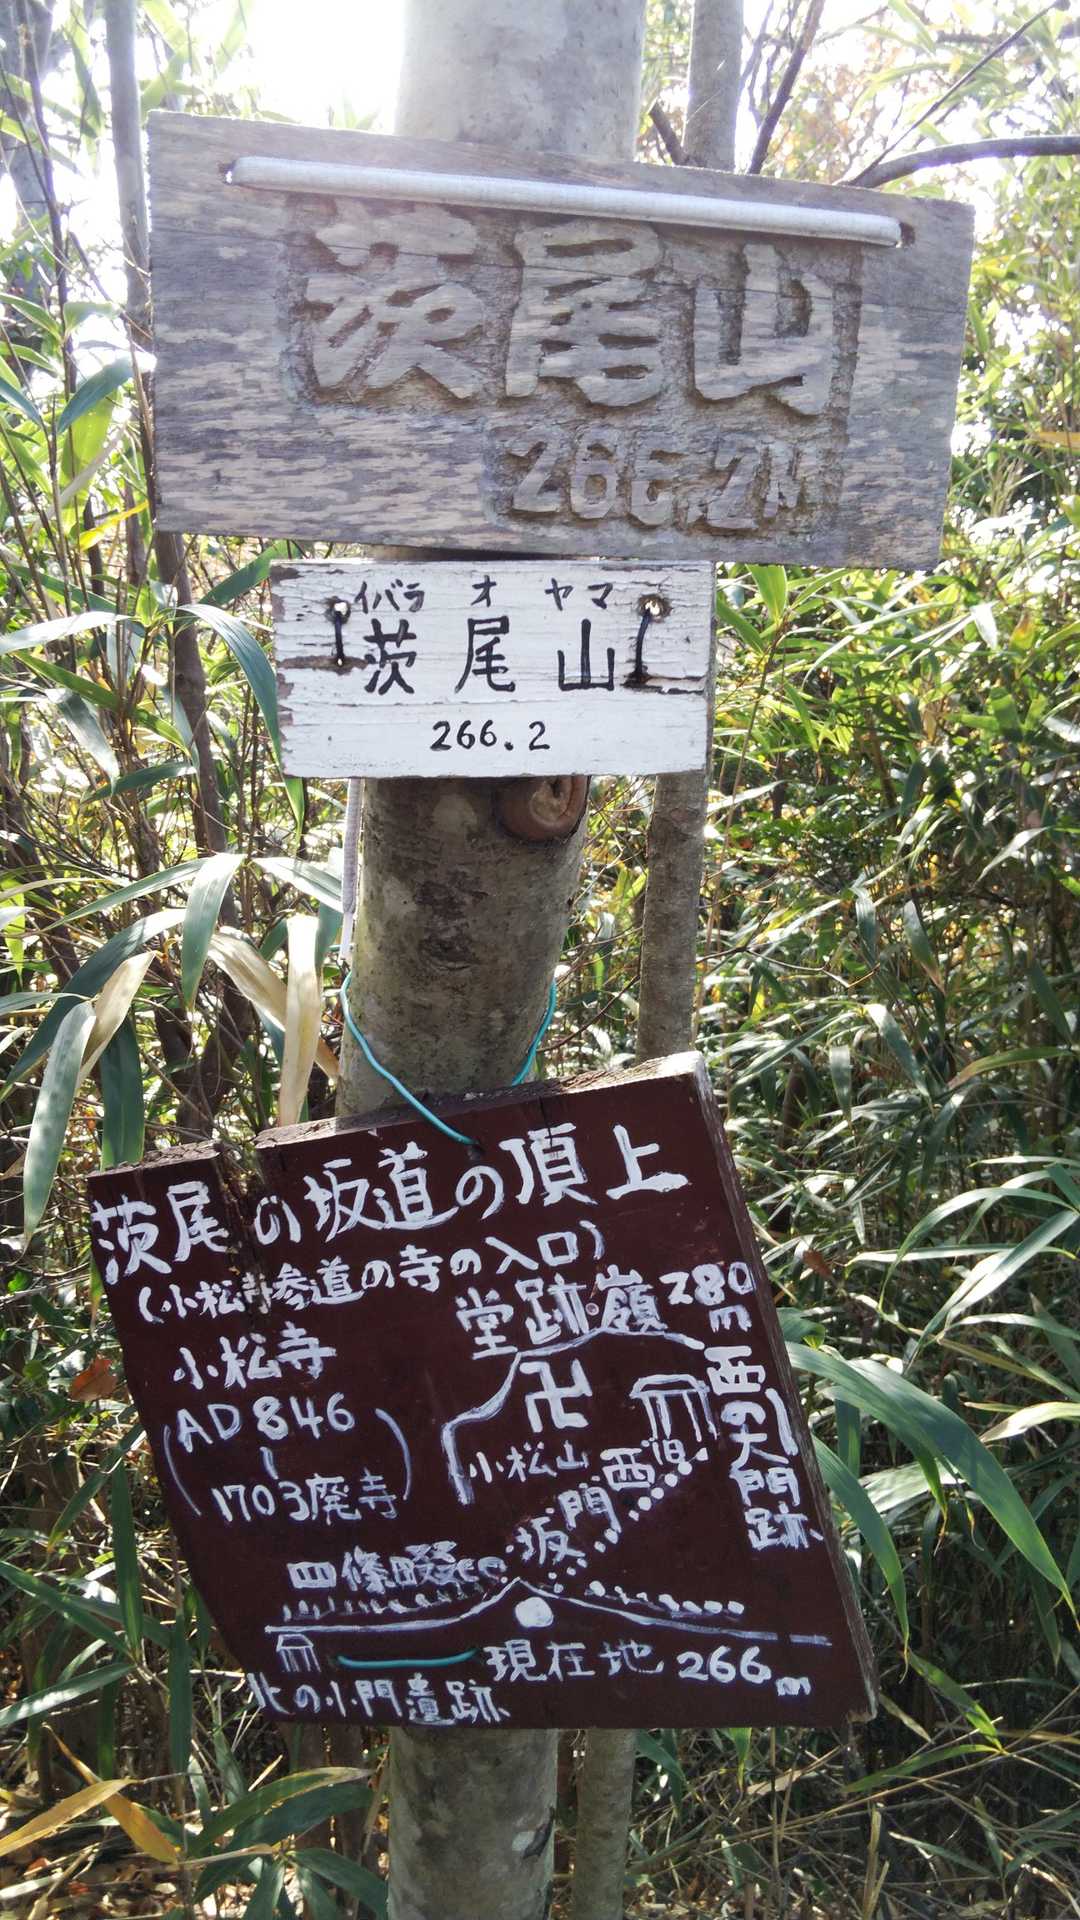 茨尾山
266.2M
イバラ オ ヤマ
茨尾山
266.2
茨尾の坂道の頂上
(小松寺参道の寺の入口)
小松寺
AD846
1703廃寺
堂跡嶺280m
卍
小松山
西の大門跡
旧
西門坂
四條畷cc
現在地 266m
北の小門遺跡